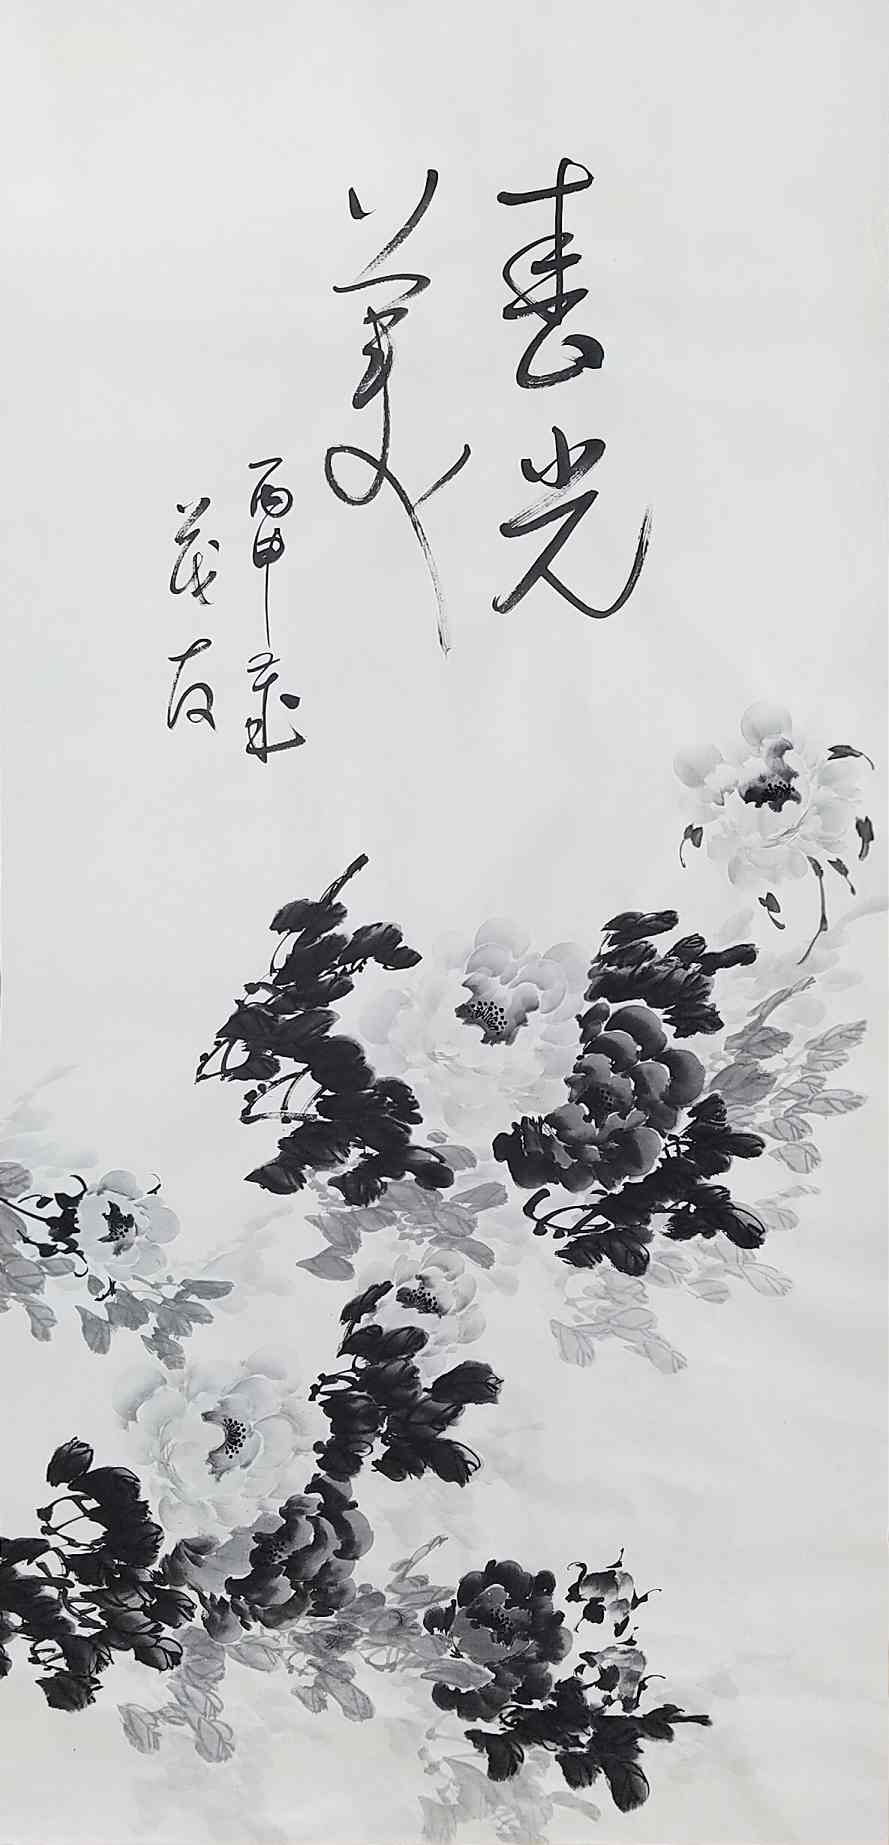 春光
美
丙申歲
茂友